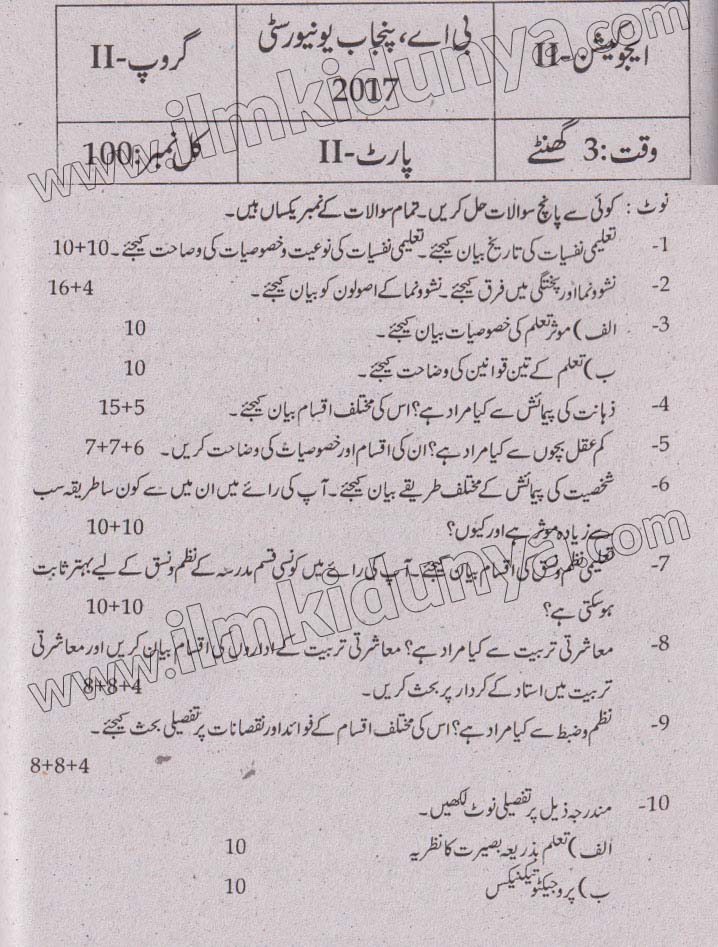 ایجوکیشن-II
بی اے، پنجاب یونیورسٹی
2017
گروپ-II
وقت: 3 گھنٹے
پارٹ-II
کل نمبر: 100
نوٹ: کوئی سے پانچ سوالات حل کریں۔ تمام سوالات کے نمبر یکساں ہیں۔
1- تعلیمی نفسیات کی تاریخ بیان کیجئے۔ تعلیمی نفسیات کی نوعیت و خصوصیات کی وضاحت کیجئے۔ 10+10
2- نشوونما اور پختگی میں فرق کیجئے۔ نشوونما کے اصولون کو بیان کیجئے۔ 16+4
3- الف) موثر تعلم کی خصوصیات بیان کیجئے۔ 10
ب) تعلم کے تین قوانین کی وضاحت کیجئے۔ 10
4- ذہانت کی پیمائش سے کیا مراد ہے؟ اس کی مختلف اقسام بیان کیجئے۔ 15+5
5- کم عقل بچوں سے کیا مراد ہے؟ ان کی اقسام اور خصوصیات کی وضاحت کریں۔ 7+7+6
6- شخصیت کی پیمائش کے مختلف طریقے بیان کیجئے۔ آپ کی رائے میں ان میں سے کون سا طریقہ سب
سے زیادہ موثر ہے اور کیوں؟ 10+10
7- تعلیمی نظم و نسق کی اقسام بیان کیجئے۔ آپ کی رائے میں کونسی قسم مدرسہ کے نظم و نسق کے لیے بہتر ثابت
ہو سکتی ہے؟ 10+10
8- معاشرتی تربیت سے کیا مراد ہے؟ معاشرتی تربیت کے اداروں کی اقسام بیان کریں اور معاشرتی
تربیت میں استاد کے کردار پر بحث کریں۔ 8+8+4
9- نظم و ضبط سے کیا مراد ہے؟ اس کی مختلف اقسام کے فوائد اور نقصانات پر تفصیلی بحث کیجئے۔
8+8+4
10- مندرجہ ذیل پر تفصیلی نوٹ لکھیں۔
الف) تعلم بذریعہ بصیرت کا نظریہ 10
ب) پروجیکٹو تیکنیکس 10
www.ilmkidunya.com
www.ilmkidunya.com